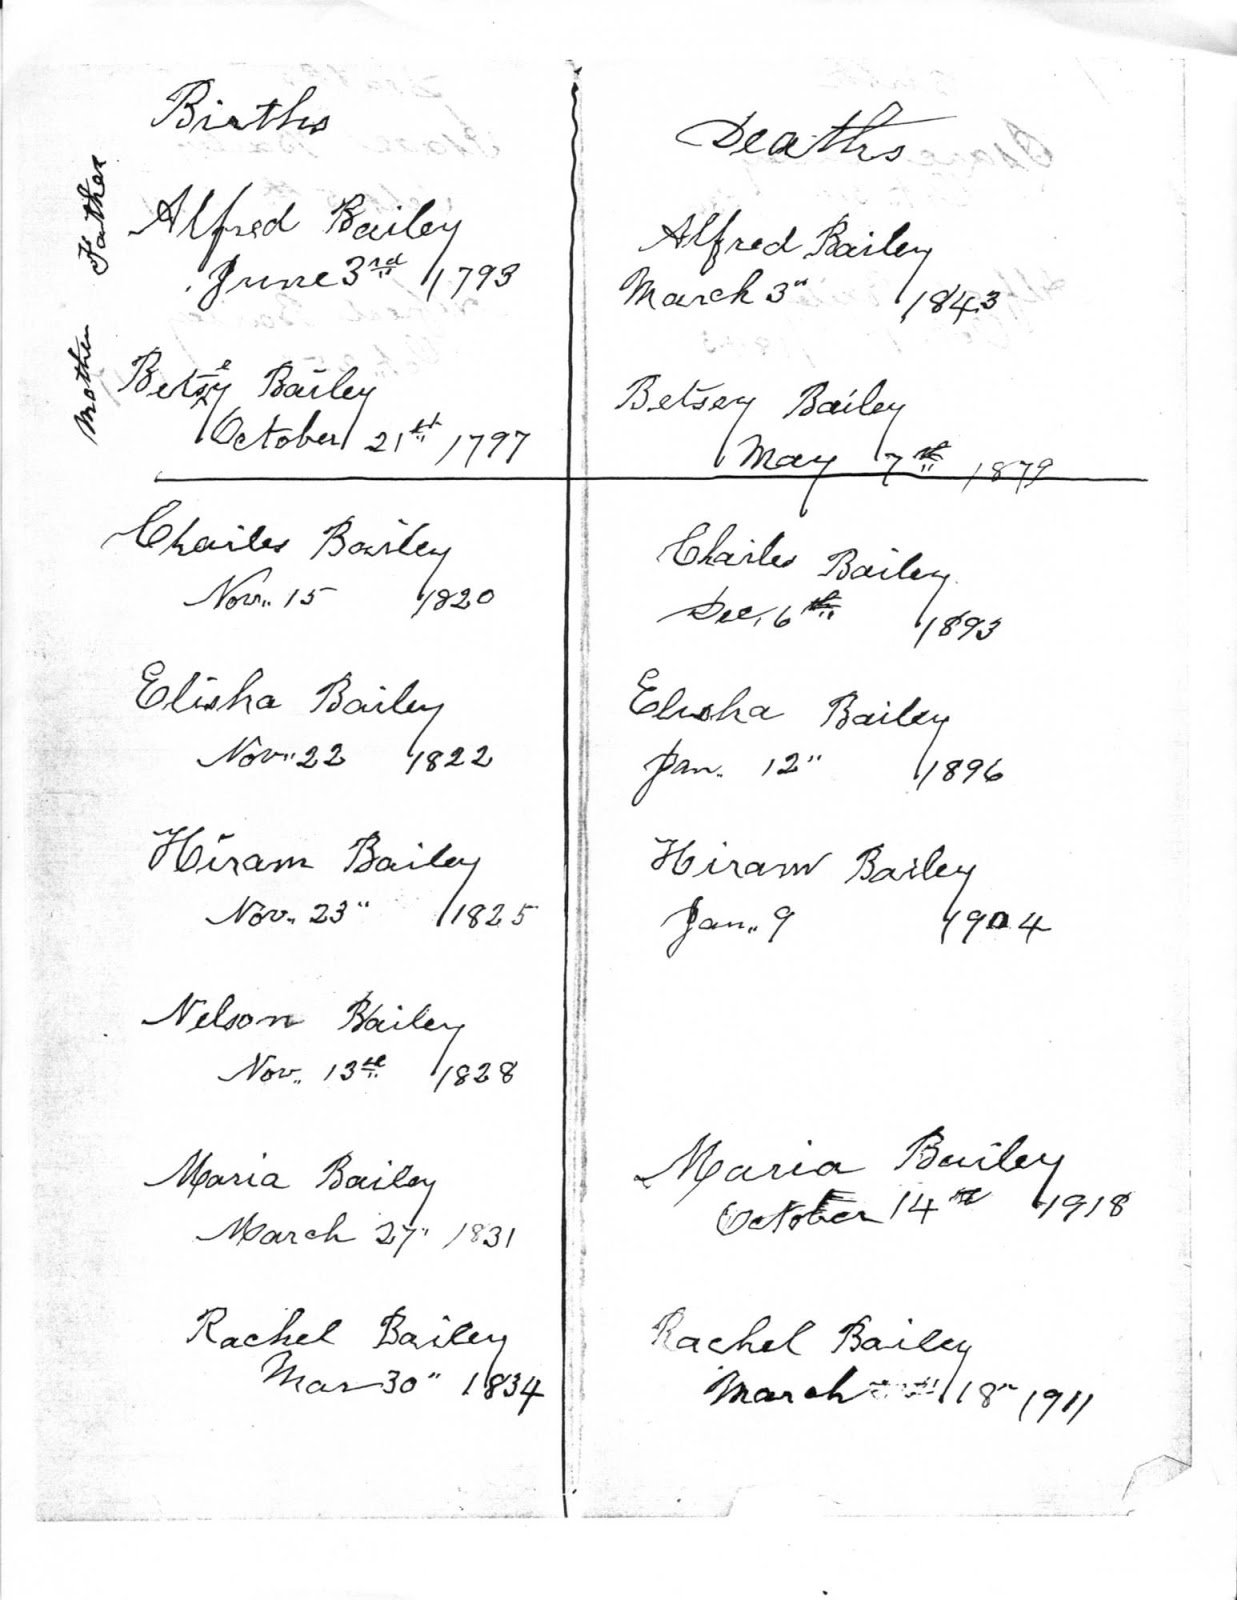 Births
Father
Alfred Bailey
June 3rd 1793
Mother
Betsey Bailey
October 21st 1797
Charles Bailey
Nov. 15 1820
Elisha Bailey
Nov. 22 1822
Hiram Bailey
Nov. 23" 1825
Nelson Bailey
Nov. 13th 1828
Maria Bailey
March 27" 1831
Rachel Bailey
Mar 30" 1834
Deaths
Alfred Bailey
March 3" 1843
Betsey Bailey
May 7th 1879
Charles Bailey
Dec. 6th 1893
Elisha Bailey
Jan. 12" 1896
Hiram Bailey
Jan. 9 1904
Maria Bailey
October 14th 1918
Rachel Bailey
March 18" 1911